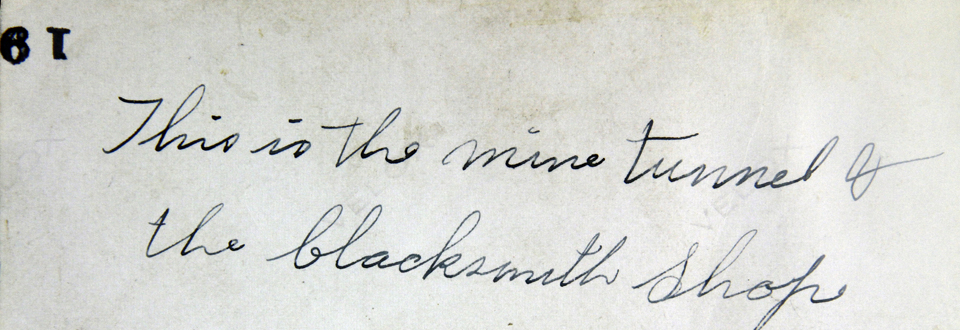 61
This is the mine tunnel &
the blacksmith shop